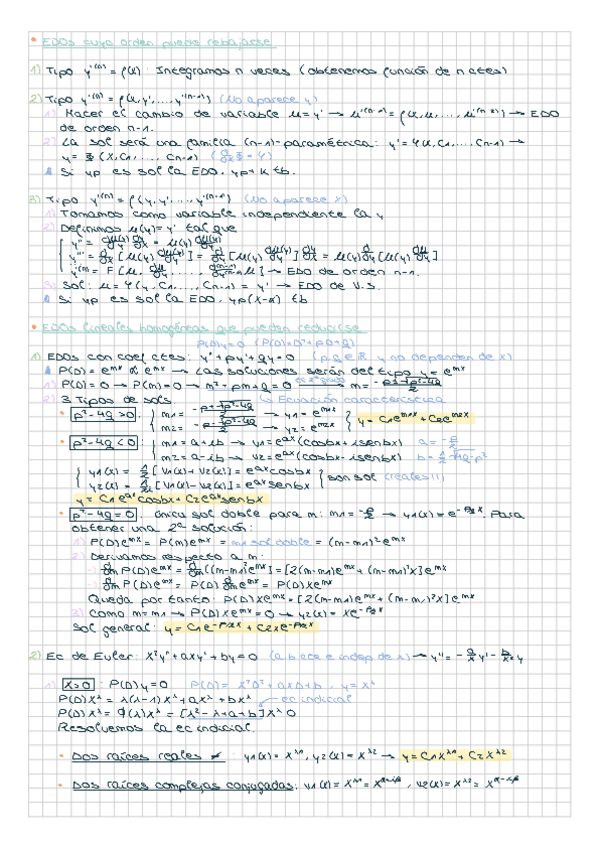 • EDOs cuyo orden puede rebajarse
1) Tipo y^(n) = f(x): Integramos n veces (obtenemos función de n ctes)
2) Tipo y^(n) = f(x,y',...,y^(n-1)) (No aparece y)
1) Hacer el cambio de variable u=y' → u^(n-1) = f(x,u,...,u^(n-2)) → EDO
de orden n-1.
2) La sol será una familia (n-1)-paramétrica: y' = φ(x,C1,...,Cn-1) →
y = Φ(x,C1,..., Cn-1)
Si yp es sol la EDO, yp+k tb.
3) Tipo y^(n) = f(y,y',...,y^(n-1)) (No aparece x)
1) Tomamos como variable independiente la y
2) Definimos u(y)=y' tal que
→ EDO de orden n-1.
3) Sol: u = φ(y,C1,...,Cn-1) = y' → EDO de V.S.
Si yp es sol la EDO, yp(x-a) tb
• EDOs lineales homogéneas que pueden reducirse
P(D)y=0 (P(D)=D²+pD+q)
1) EDOs con coef ctes: y''+py'+qy=0 (p,q ∈ ℝ y no dependen de x)
P(D) = e^mx α e^mx → Las soluciones serán del tipo y = e^mx
1) P(D)=0 → P(m)=0 → m²+pm+q=0
2) 3 Tipos de sols. Ecuación característica
• p²-4q>0: m1 = → y1=e^m1x
m2 = → y2=e^m2x
y=C1e^m1x+C2e^m2x
• p²-4q<0: m1=a+ib → y1=e^ax(cosbx+isenbx)
m2=a-ib → y2=e^ax(cosbx-isenbx)
y1(x) = 1/2[y1(x)+y2(x)]=e^ax cosbx
y2(x) = 1/2i[y1(x)-y2(x)]=e^ax senbx
son sol (reales!!)
y=C1e^ax cosbx+C2e^ax senbx
• p²-4q=0: única sol doble para m: m1=-p/2 → y1(x)=e^-p/2x. Para
obtener una 2ª solución:
1) P(D)e^mx = P(m)e^mx = m1 sol doble = (m-m1)²e^mx
2) Derivamos respecto a m:
-) d/dm P(D)e^mx = d/dm((m-m1)²e^mx)=[2(m-m1)e^mx+(m-m1)²x]e^mx
-) d/dm P(D)e^mx = P(D) d/dm e^mx = P(D)xe^mx
Queda por tanto: P(D)xe^mx=[2(m-m1)e^mx+(m-m1)²x]e^mx
3) Como m=m1 → P(D)xe^mx=0 → y2(x)= xe^-p/2x
Sol general: y=C1e^-p/2x+C2xe^-p/2x
2) Ec de Euler: x²y''+axy'+by=0 (a,b cte e indep de x) → y''= -a/x y' - b/x² y
1) x>0: P(D)y=0 P(D)= x²D²+axD+b, y=x^λ
P(D)x^λ = λ(λ-1)x^λ+aλx^λ+bx^λ ec indicial
Resolvemos la ec indicial.
• Dos raíces reales ≠: y1(x)=x^λ1, y2(x)=x^λ2 → y=C1x^λ1+C2x^λ2
• Dos raíces complejas conjugadas: y1(x)=x^λ1=x^α+iβ, y2(x)=x^λ2=x^α-iβ